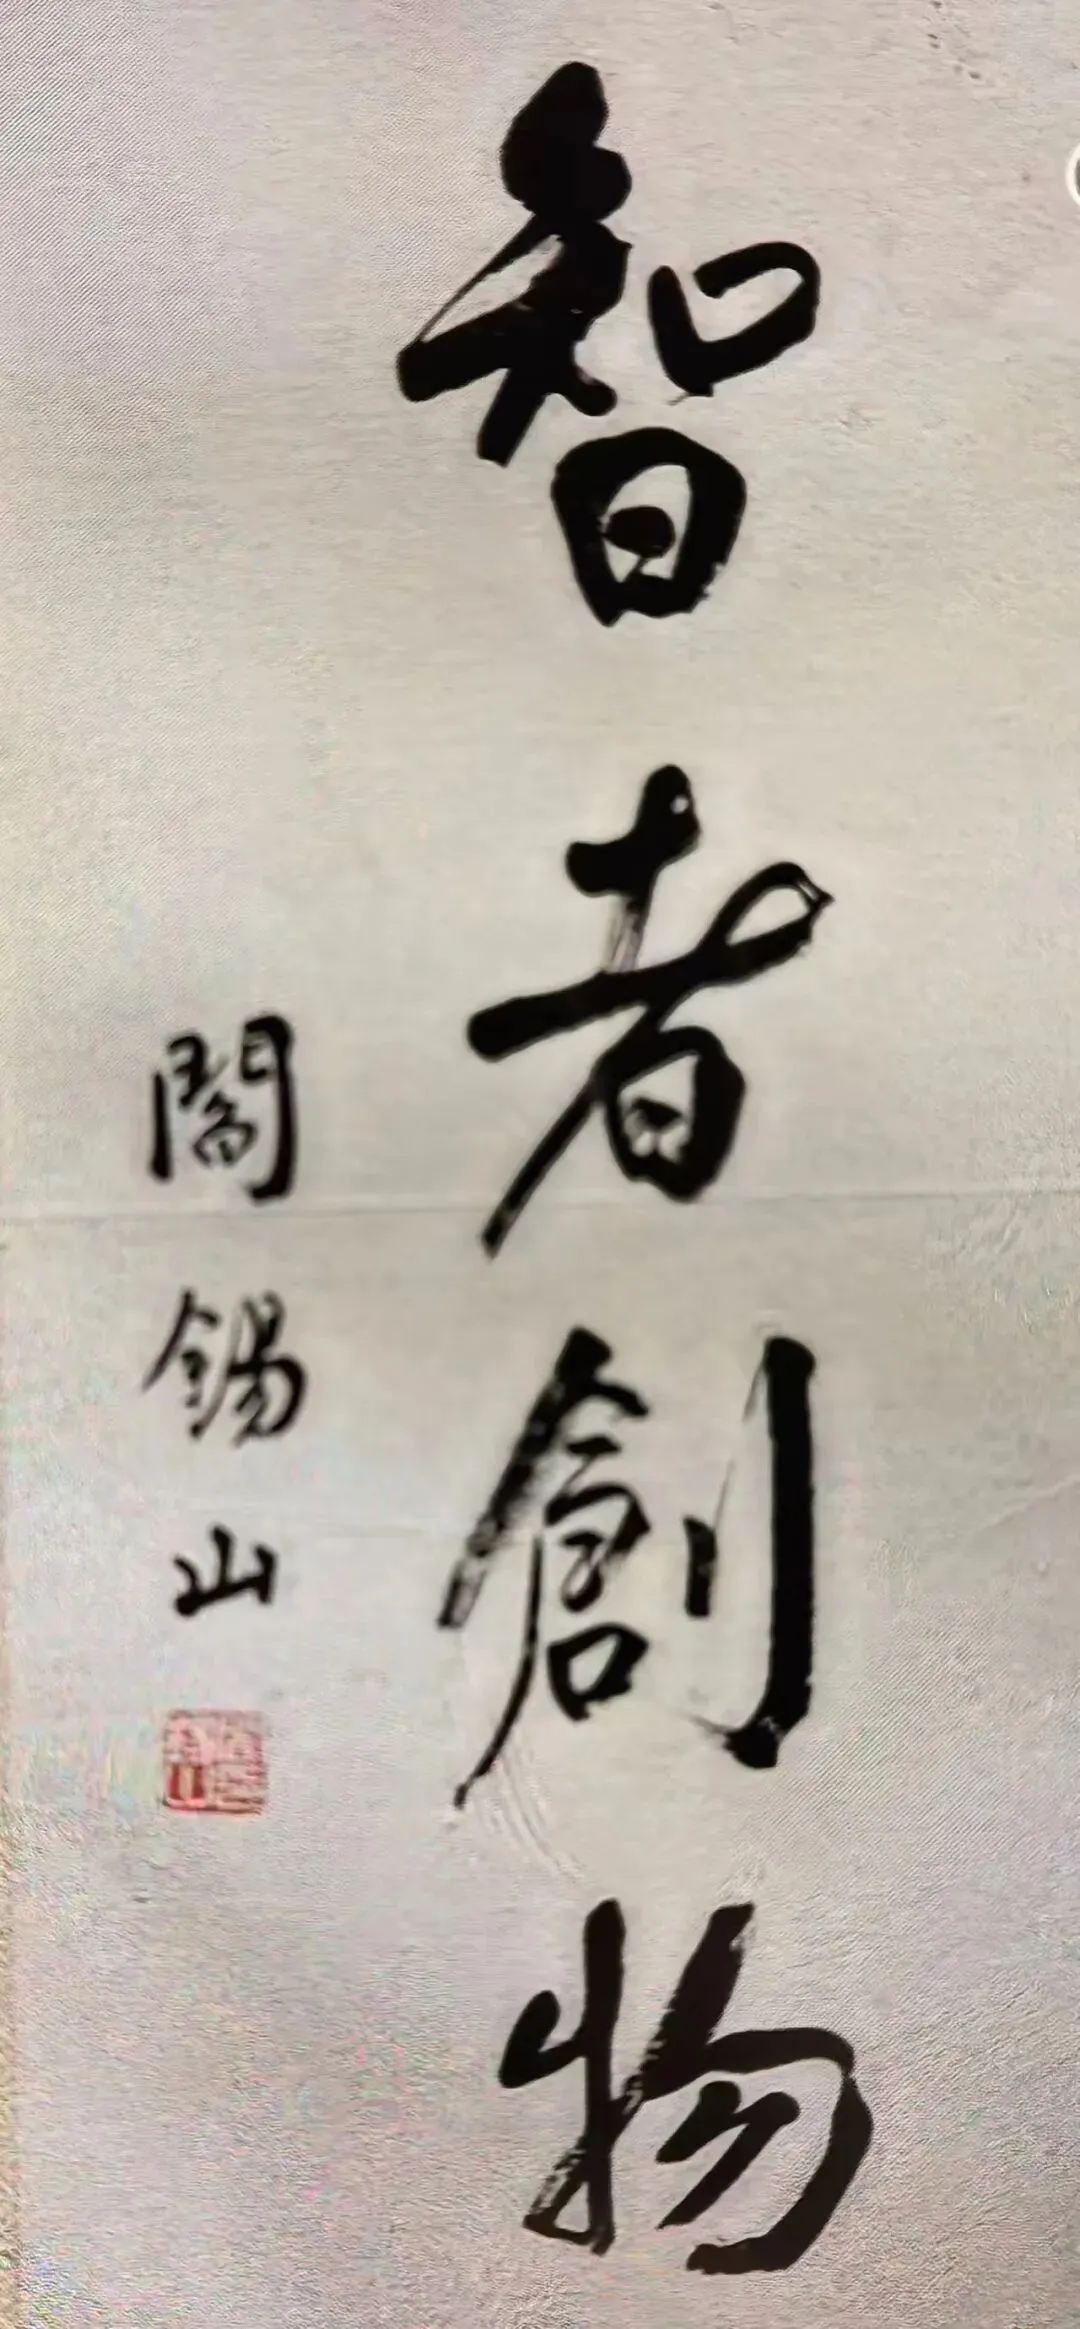 智者創物
閻錫山